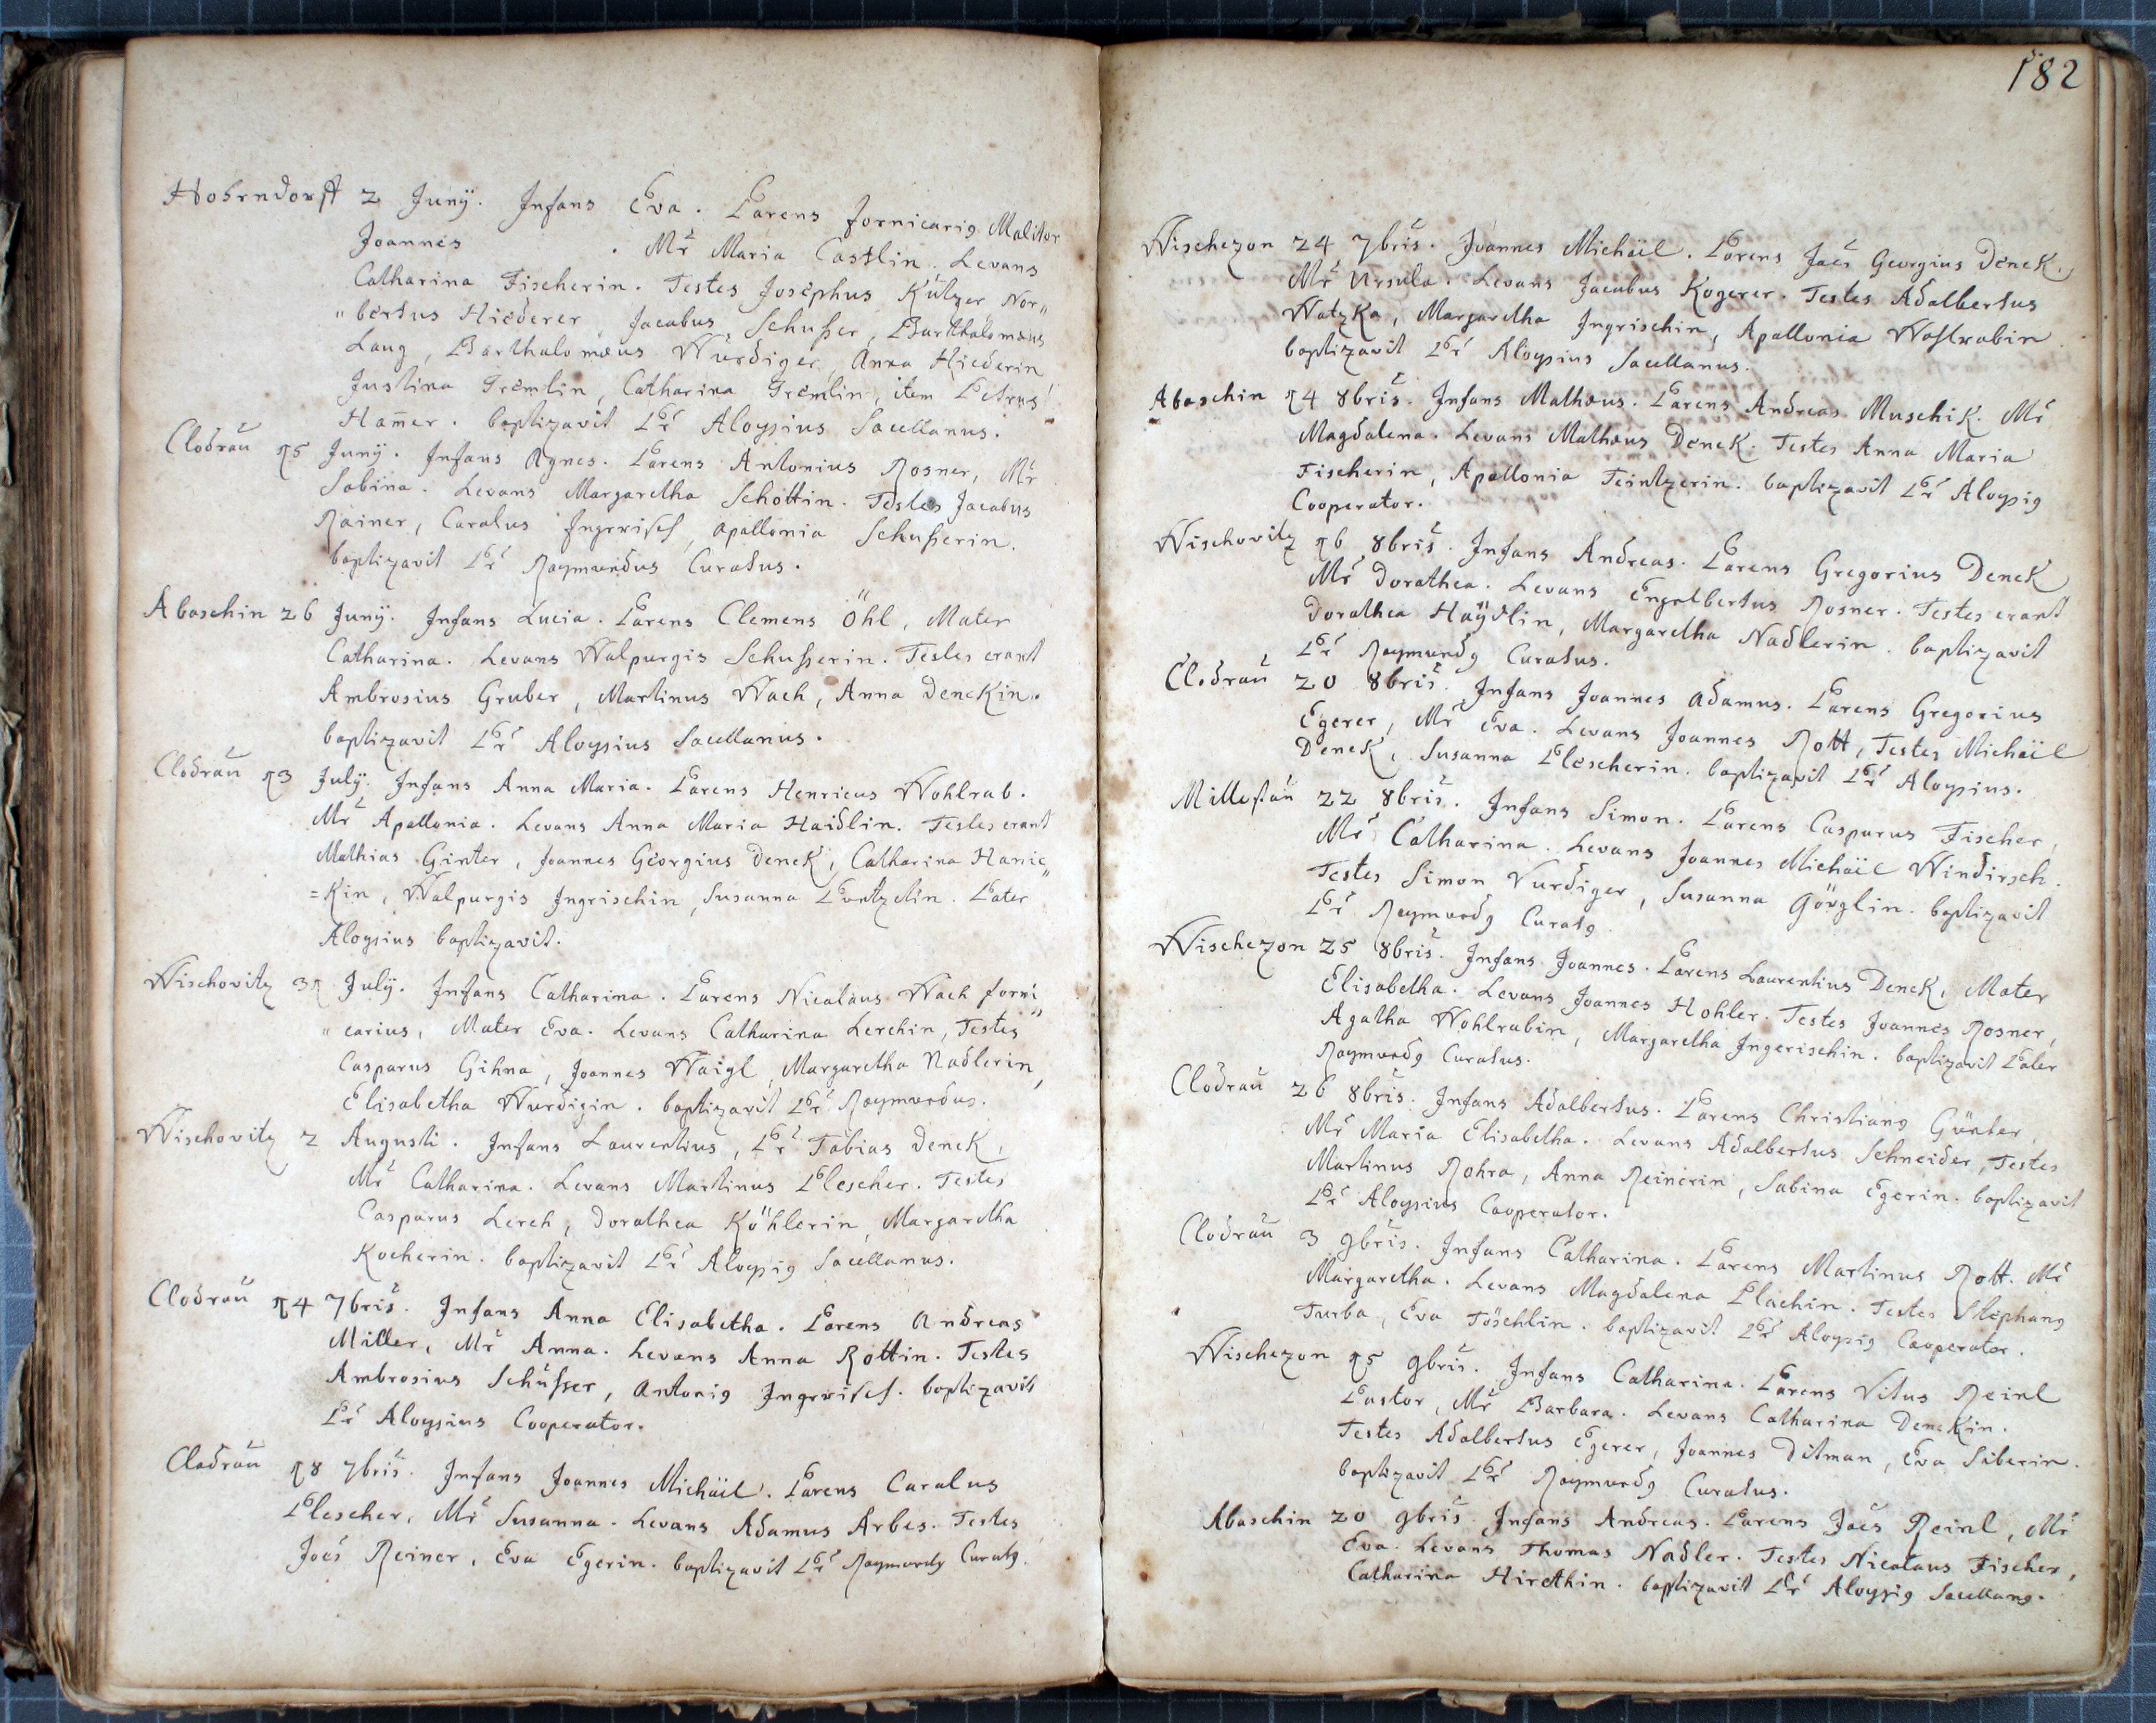 Hobrndorff 2 Junÿ. Infans Eva. Parens fornicariq Molitor
Joannes . Mr̃ Maria Castlin. Levans
Catharina Fischerin. Testes Josephus Kützer Nor„
„bertus Hiederer, Jacobus Schusser, Barthalomæus
Lang, Barthalomæus Würdiger, Anna Hiederin
Justina Tremlin, Catharina Tremlin, item Petrus
Ham̄er. baptizavit Pr̃ Aloysius Sacellanus.
Clodrau 15 Junÿ. Infans Agnes. Parens Antonius Rosner, Mr̃
Sabina. Levans Margaretha Schottin. Testes Jacobus
Rainer, Carolus Ingrrisch, Apallonia Schusserin.
baptizavit Pr̃ Raymundus Curatus.
Abaschin 26 Junÿ. Infans Lucia. Parens Clemens Öhl, Mater
Catharina. Levans Walpurgis Schusserin. Testes erant
Ambrosius Gruber, Martinus Wach, Anna Denckin.
baptizavit Pr̃ Aloysius Sacellanus.
Clodrau 13 Julÿ. Infans Anna Maria. Parens Henricus Wohlrab.
Mr̃ Apallonia. Levans Anna Maria Haidlin. Testes erant
Mathias Ginter, Joannes Georgius Denck, Catharina Hanic„
=kin, Walpurgis Ingrischin, Susanna Puntzelin. Pater
Aloysius baptizavit.
Wischovitz 31 Julÿ. Infans Catharina. Parens Nicolaus Wach forni„
„carius, Mater Eva. Levans Catharina Lerchin, Testes
Casparus Gihna, Joannes Waigl, Margaretha Nadlerin,
Elisabetha Wurdigin. baptizavit Pr̃ Raymundus.
Wischovitz 2 Augusti. Infans Laurentius, Pr̃ Tobias Denck,
Mr̃ Catharina. Levans Martinus Plescher. Testes
Casparus Lerch, Dorathea Köhlerin, Margaretha
Kocherin. baptizavit Pr̃ Aloysiq Sacellanus.
Clodrau 14 7bris. Infans Anna Elisabetha. Parens Andreas
Miller, Mr̃ Anna. Levans Anna Rottin. Testes
Ambrosius Schüsser, Antoniq Ingrrisch. baptizavit
Pr̃ Aloysius Cooperator.
Clodrau 18 7bris. Infans Joannes Michäel. Parens Carolus
Plescher, Mr̃ Susanna. Levans Adamus Arbes. Testes
Joẽs Reiner, Eva Egerin. baptizavit Pr̃ Raymundq Curatq.
182
Wischezon 24 7bris. Joannes Michäel. Parens Joẽs Georgius Denck,
Mr̃ Ursula. Levans Jacobus Kogerer. Testes Adalbertus
Watzka, Margaretha Ingrischin, Apallonia Wohlrabin.
baptizavit Pr̃ Aloysius Sacellanus.
Abaschin 14 8bris. Infans Mathæus. Parens Andreas Muschik. Mr̃
Magdalena. Levans Mathæus Denck. Testes Anna Maria
Fischerin, Apallonia Feintzerin. baptizavit Pr̃ Aloysiq
Cooperator.
Wischovitz 16 8bris. Infans Andreas. Parens Gregorius Denck
Mr̃ Dorathea. Levans Engelbertus Rosner. Testes erant
Dorathea Haÿdlin, Margaretha Nadlerin. baptizavit
Pr̃ Raymundq Curatus.
Clodrau 20 8bris. Infans Joannes Adamus. Parens Gregorius
Egerer, Mr̃ Eva. Levans Joannes Rott, Testes Michäel
Denck, Susanna Plescherin. baptizavit Pr̃ Aloysius.
Millestau 22 8bris. Infans Simon. Parens Casparus Fischer,
Mr̃ Catharina. Levans Joannes Michäel Windirsch.
Testes Simon Vurdiger, Susanna Görglin. baptizavit
Pr̃ Raymundq Curatq.
Wischezon 25 8bris. Infans Joannes. Parens Laurentius Denck, Mater
Elisabetha. Levans Joannes Hohler. Testes Joannes Rosner,
Agatha Wohlrabin, Margaretha Ingerischin. baptizavit Pater
Raymundq Curatus.
Clodrau 26 8bris. Infans Adalbertus. Parens Christianq Günter,
Mr̃ Maria Elisabetha. Levans Adalbertus Schneider, Testes
Martinus Rohra, Anna Reinerin, Sabina Egerin. baptizavit
Pr̃ Aloysius Cooperator.
Clodrau 3 9bris. Infans Catharina. Parens Martinus Rott. Mr̃
Margaretha. Levans Magdalena Plachin. Testes Stephanq
Turba, Eva Töschlin. baptizavit Pr̃ Aloysiq Cooperator.
Wischezon 15 9bris. Infans Catharina. Parens Vitus Reinl
Pastor, Mr̃ Barbara. Levans Catharina Denckin.
Testes Adalbertus Egerer, Joannes Ditman, Eva Siberin.
baptizavit Pr̃ Raymundq Curatus.
Abaschin 20 9bris. Infans Andreas. Parens Joẽs Reinl, Mr̃
Eva. Levans Thomas Nadler. Testes Nicolaus Fischer,
Catharina Hirethin. baptizavit Pr̃ Aloysiq Sacellanq.